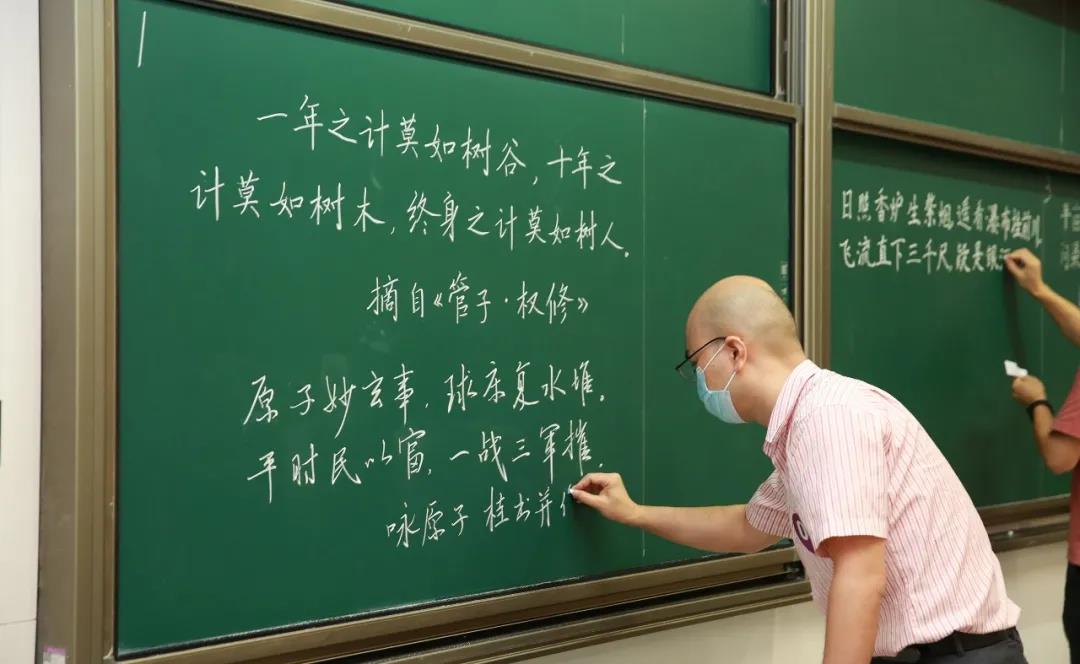 1
一年之计莫如树谷,十年之
计莫如树木,终身之计莫如树人。
摘自《管子·权修》
原子妙玄事,球床复水堆。
平时民以富,一战三军摧。
咏原子 桂书并
日照香炉生紫烟遥看瀑布挂前川
飞流直下三千尺疑是银